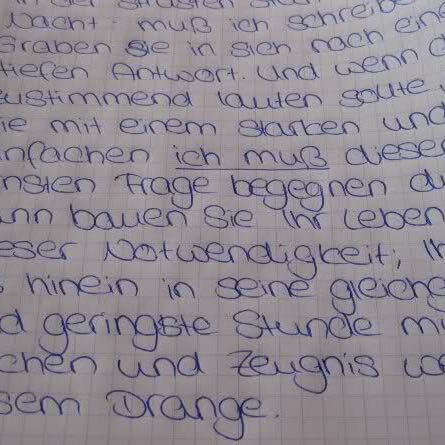 der stillsten Stun
Nacht: muß ich schreibe
Graben Sie in sich nach eine
tiefen Antwort. Und wenn d
zustimmend lauten sollte
ie mit einem starken und
infachen ich muß dieser
nsten Frage begegnen dü
ann bauen Sie Ihr Leben
eser Notwendigkeit; Ih
s hinein in seine gleichg
d geringste Stunde mu
chen und Zeugnis we
sem Drange.